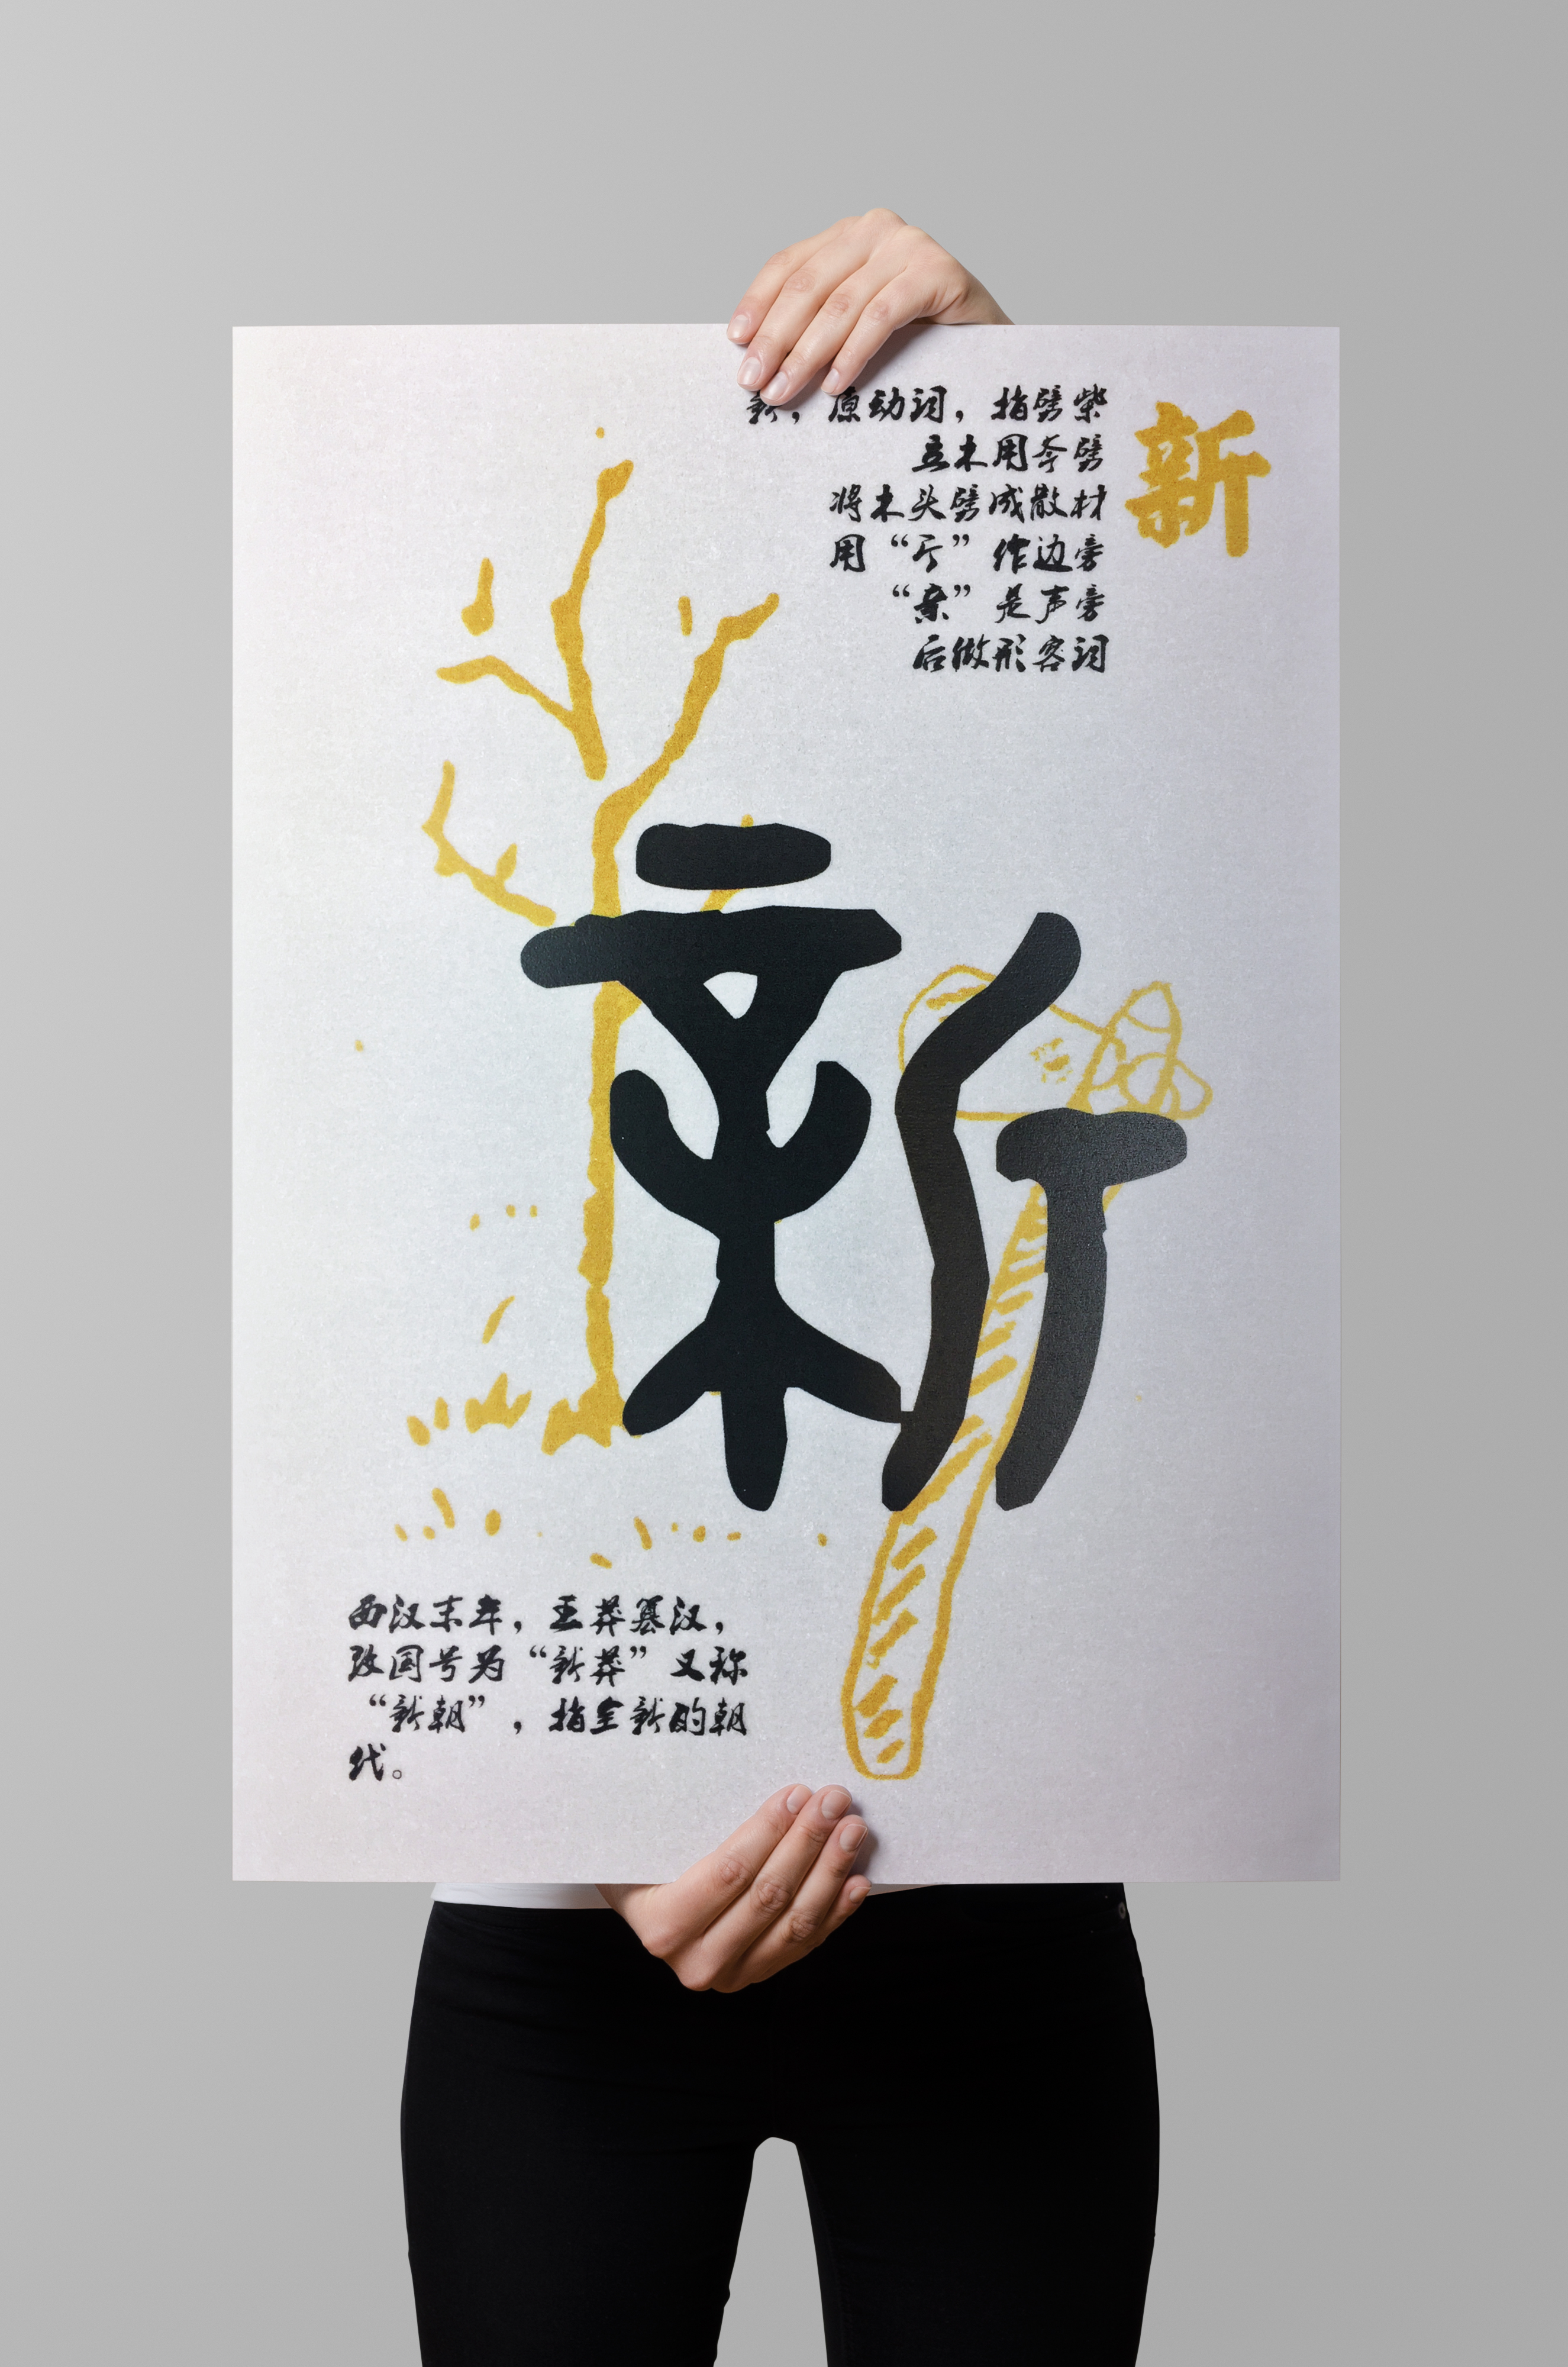 新
新，原动词，指劈柴
立木用斧劈
将木头劈成散材
用“斤”作边旁
“亲”是声旁
后做形容词
新
西汉末年，王莽篡汉，
改国号为“新莽”又称
“新朝”，指全新的朝
代。